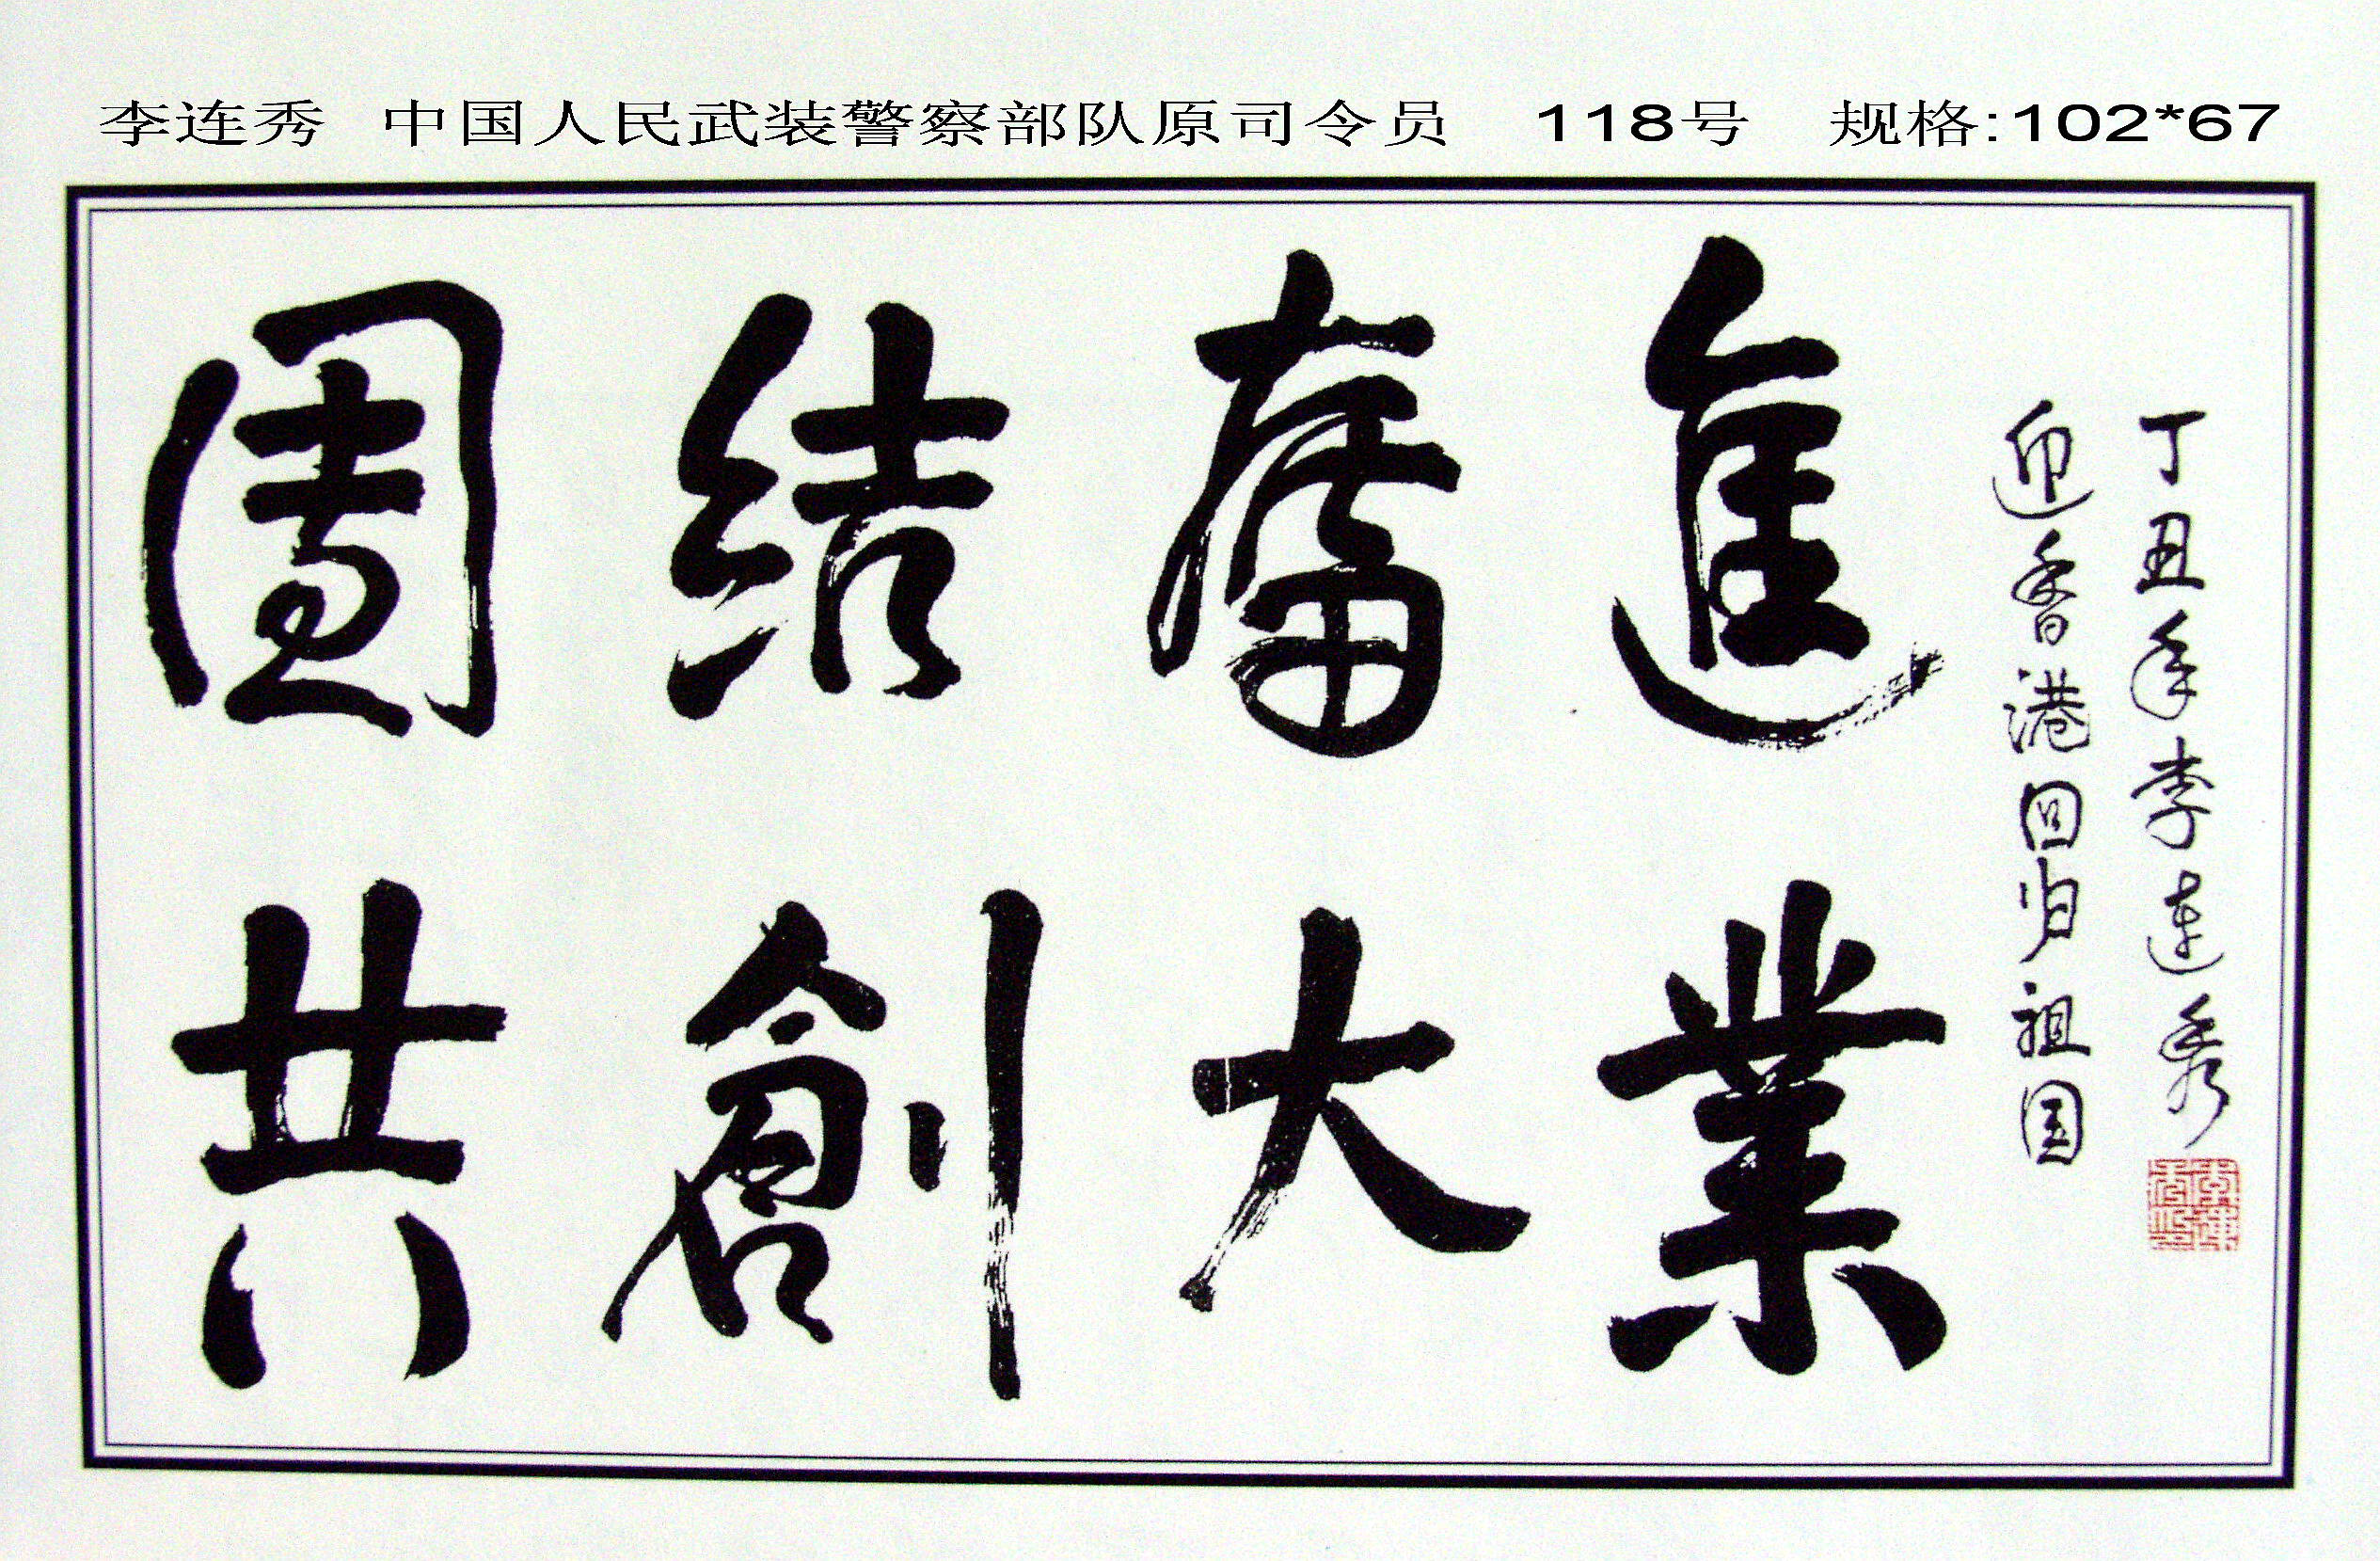 李连秀 中国人民武装警察部队原司令员 118号 规格:102*67
團結奮進
共創大業
迎香港回归祖国
丁丑年李连秀